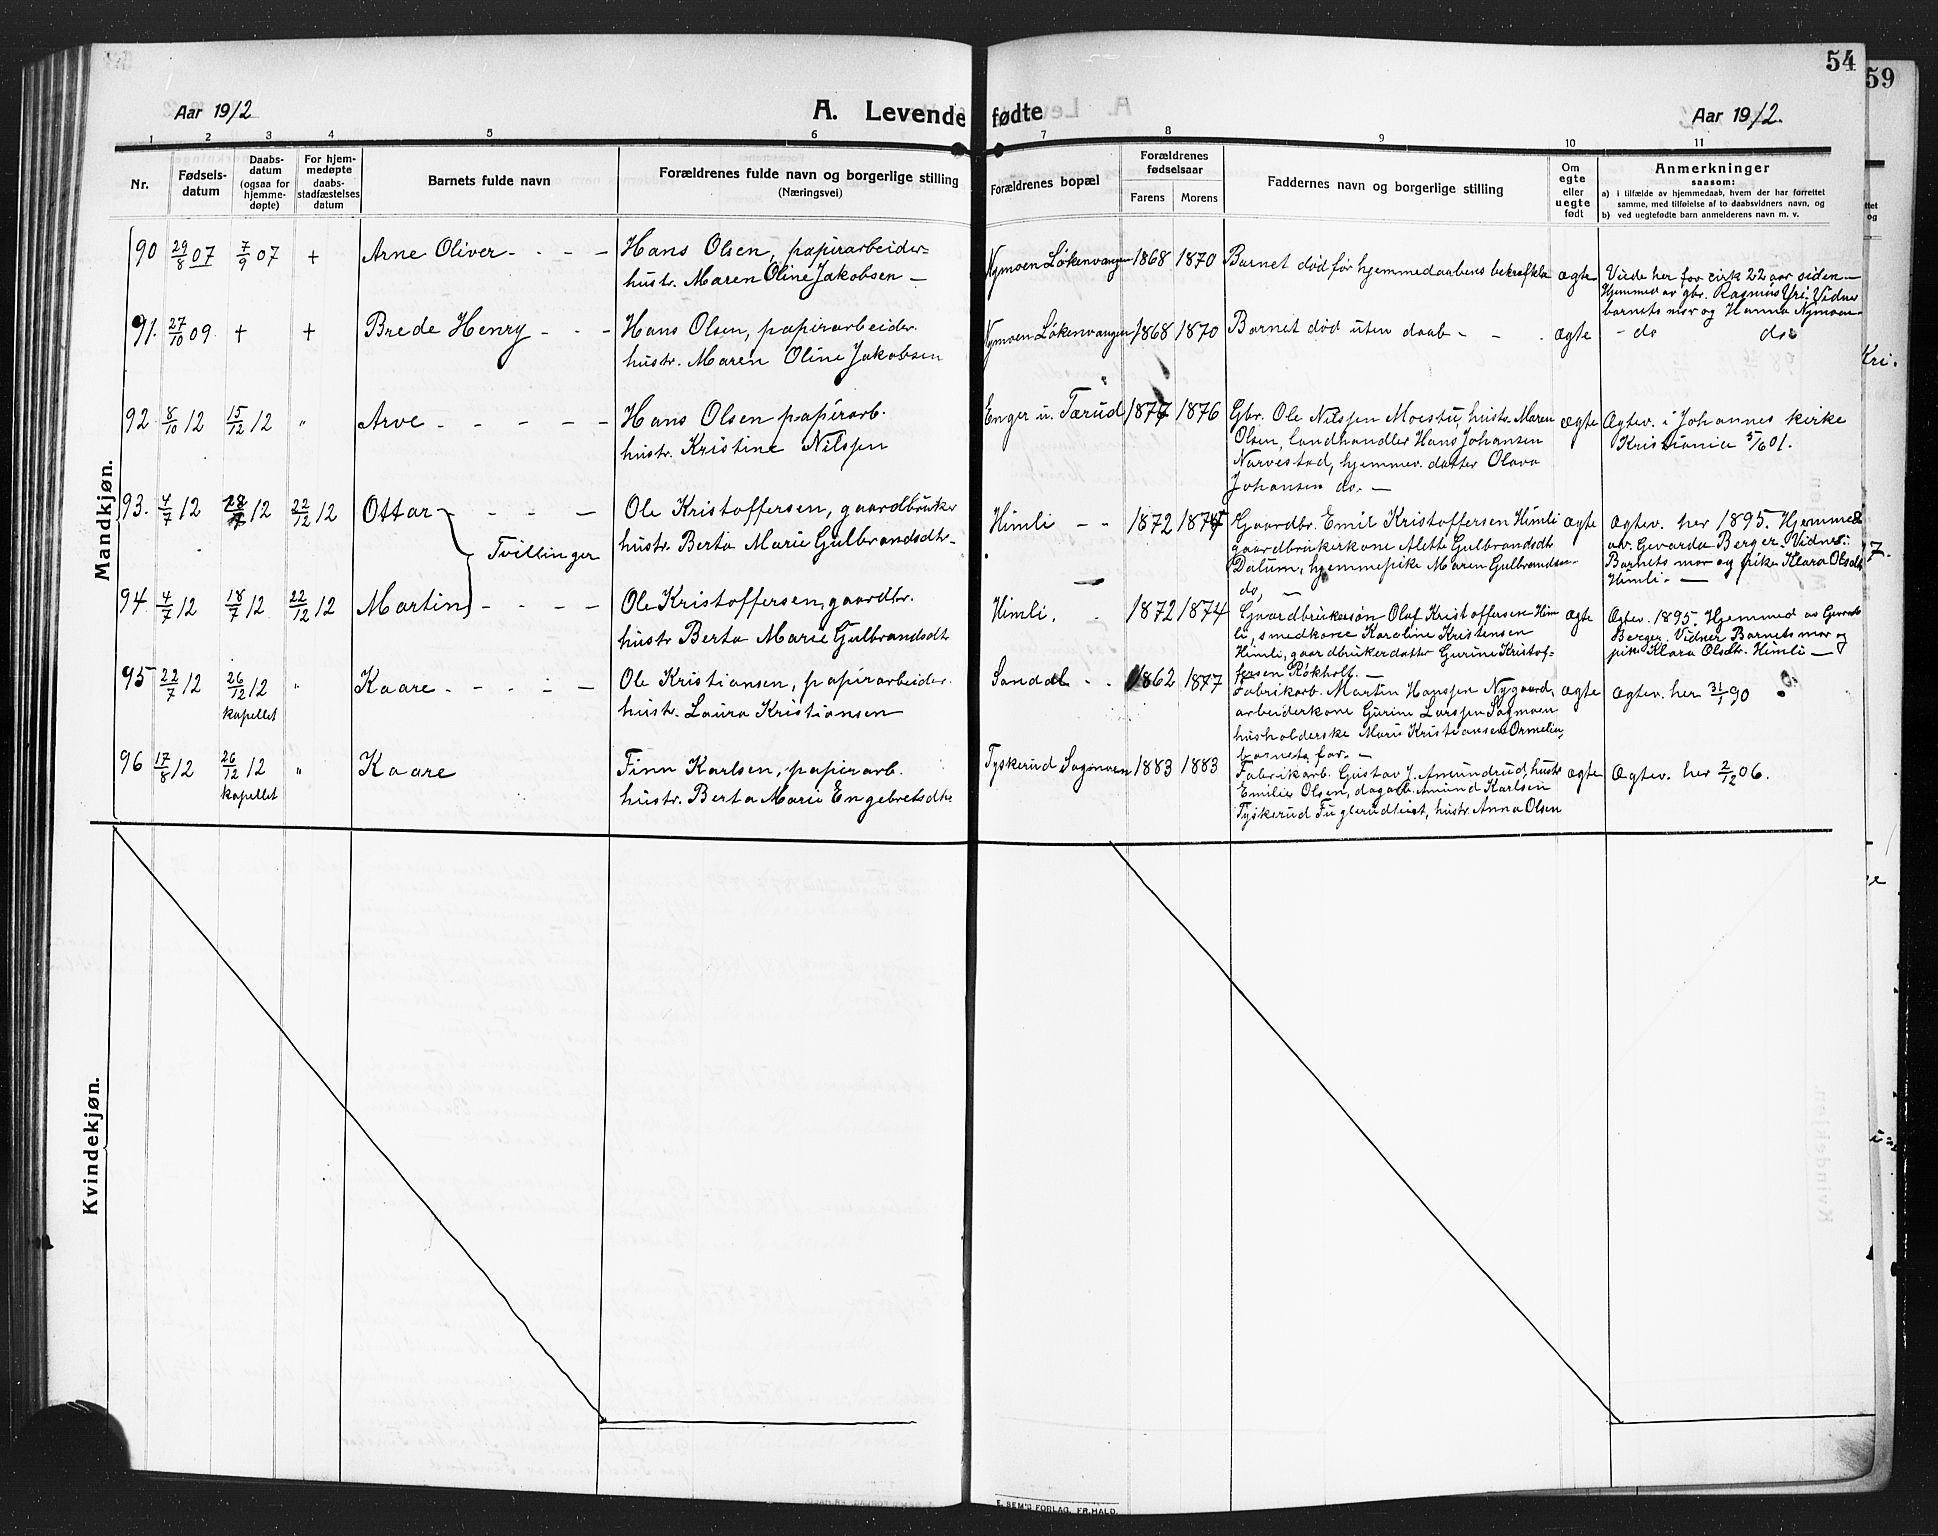 54
59
Aar 1912
A. Levende fødte
Aar 1912.
1 2 3 4 5 6 7 8 9 10 11
Nr.
Fødsels-
datum
Daabs-
datum
(ogsaa for
hjemme-
døpte)
For hjem-
medøpte
daabs-
stadfæstelses
datum
Barnets fulde navn
Forældrenes fulde navn og borgerlige stilling
(Næringsvei)
Forældrenes bopæl
Forældrenes
fødselsaar
Farens Morens
Faddernes navn og borgerlige stilling
Om
egte
eller
uegte
født
Anmerkninger
saasom:
a) i tilfælde av hjemmedaab, hvem der har forrettet
samme, med tilføielse af to daabsvidners navn, og
b) ved uegtefødte barn anmelderens navn m. v.
Mandkjøn.
90 29/8 07 7/9 07 + Arne Oliver - - - -
Hans Olsen, papirarbeider-
hustr. Maren Oline Jakobsen -
Nymoen Løkenvangen 1868 1870
Barnet død før hjemmedaabens bekræftelse
ægte
Viede her for cirk 22 aar siden -
Hjemmed av gbr. Rasmus Yri. Vidner
barnets mor og Hanna Nymoen -
91. 27/10 09 + + Brede Henry - - -
Hans Olsen, papirarbeider.
hustr. Maren Oline Jakobsen
Nymoen Løkenvangen 1868 1870
Barnet død uten daab - - .
ægte
- do do
92 8/10 12 15/12 12 " Arve - - - - -
Hans Olsen papirarb.
hustr. Kristine Nilssen
Enger u. Tærud 1877 1876
Gbr. Ole Nilssen Moestu, hustr. Maren
Olsen, landhandler Hans Johansen
Narvestad, hjemmev. datter Olava
Johansen do. -
ægte
Ægtev. i Johannes kirke
Kristiania 5/6 01.
93. 4/7 12 28/7 12 22/12 12 Ottar - - - -
Tvillinger
Ole Kristoffersen, gaardbruker
hustr. Berta Marie Gulbrandsdtr -
Himli - - 1872 1874
Gaardbr. Emil Kristoffersen Himli
gaardbrukerkone Alette Gulbrandsdtr
Dalum, hjemmepike Maren Gulbrandsen
do, -
ægte
Ægtev. her 1895. Hjemmed
av. Gevarda Berger. Vidner:
Barnets mor og pike Klara Olsdtr
Himli. -
94. 4/7 12 18/7 12 22/12 12 Martin - - - -
Ole Kristoffersen, gaardbr.
hustr Berta Marie Gulbrandsdtr
Himli. . 1872 1874
Gaardbrukersøn Olaf Kristoffersen Him
li, smedkone Karoline Kristensen
Himli, gaardbrukerdatter Gurine Kristof-
fersen Røkholt. -
ægte
Ægtev. 1895. Hjemmed av Gevarda
Berger. Vidner Barnets mor og
pike Klara Olsdtr. Himli -
95 22/7 12 26/12 12 " Kaare - - - -
kapellet
Ole Kristiansen, papirarbeider.
hustr. Laura Kristiansen
Sandal - - 1862 1877
Fabrikarb. Martin Hanssen Nygaard,
arbeiderkone Gurine Larssen Sagmoen
husholderske Marie Kristiansen Ormelia,
barnets far. -
ægte
Ægtev. her 31/1 90
96 17/8 12 26/12 12 " Kaare
kapellet
Finn Karlsen, papirarb.
hustr. Berta Marie Engebretsdtr
Tyskerud Sagmoen 1883 1883
Fabrikarb. Gustav J. Amundrud, hustr
Emilie Olsen, dagarb. Amund Karlsen
Tyskerud Fuglerudleiet, hustr. Anna Olsen
ægte
Ægtev. her 2/12 06.
Kvindekjøn.
E. SEM'S FORLAG, FR.HALD.